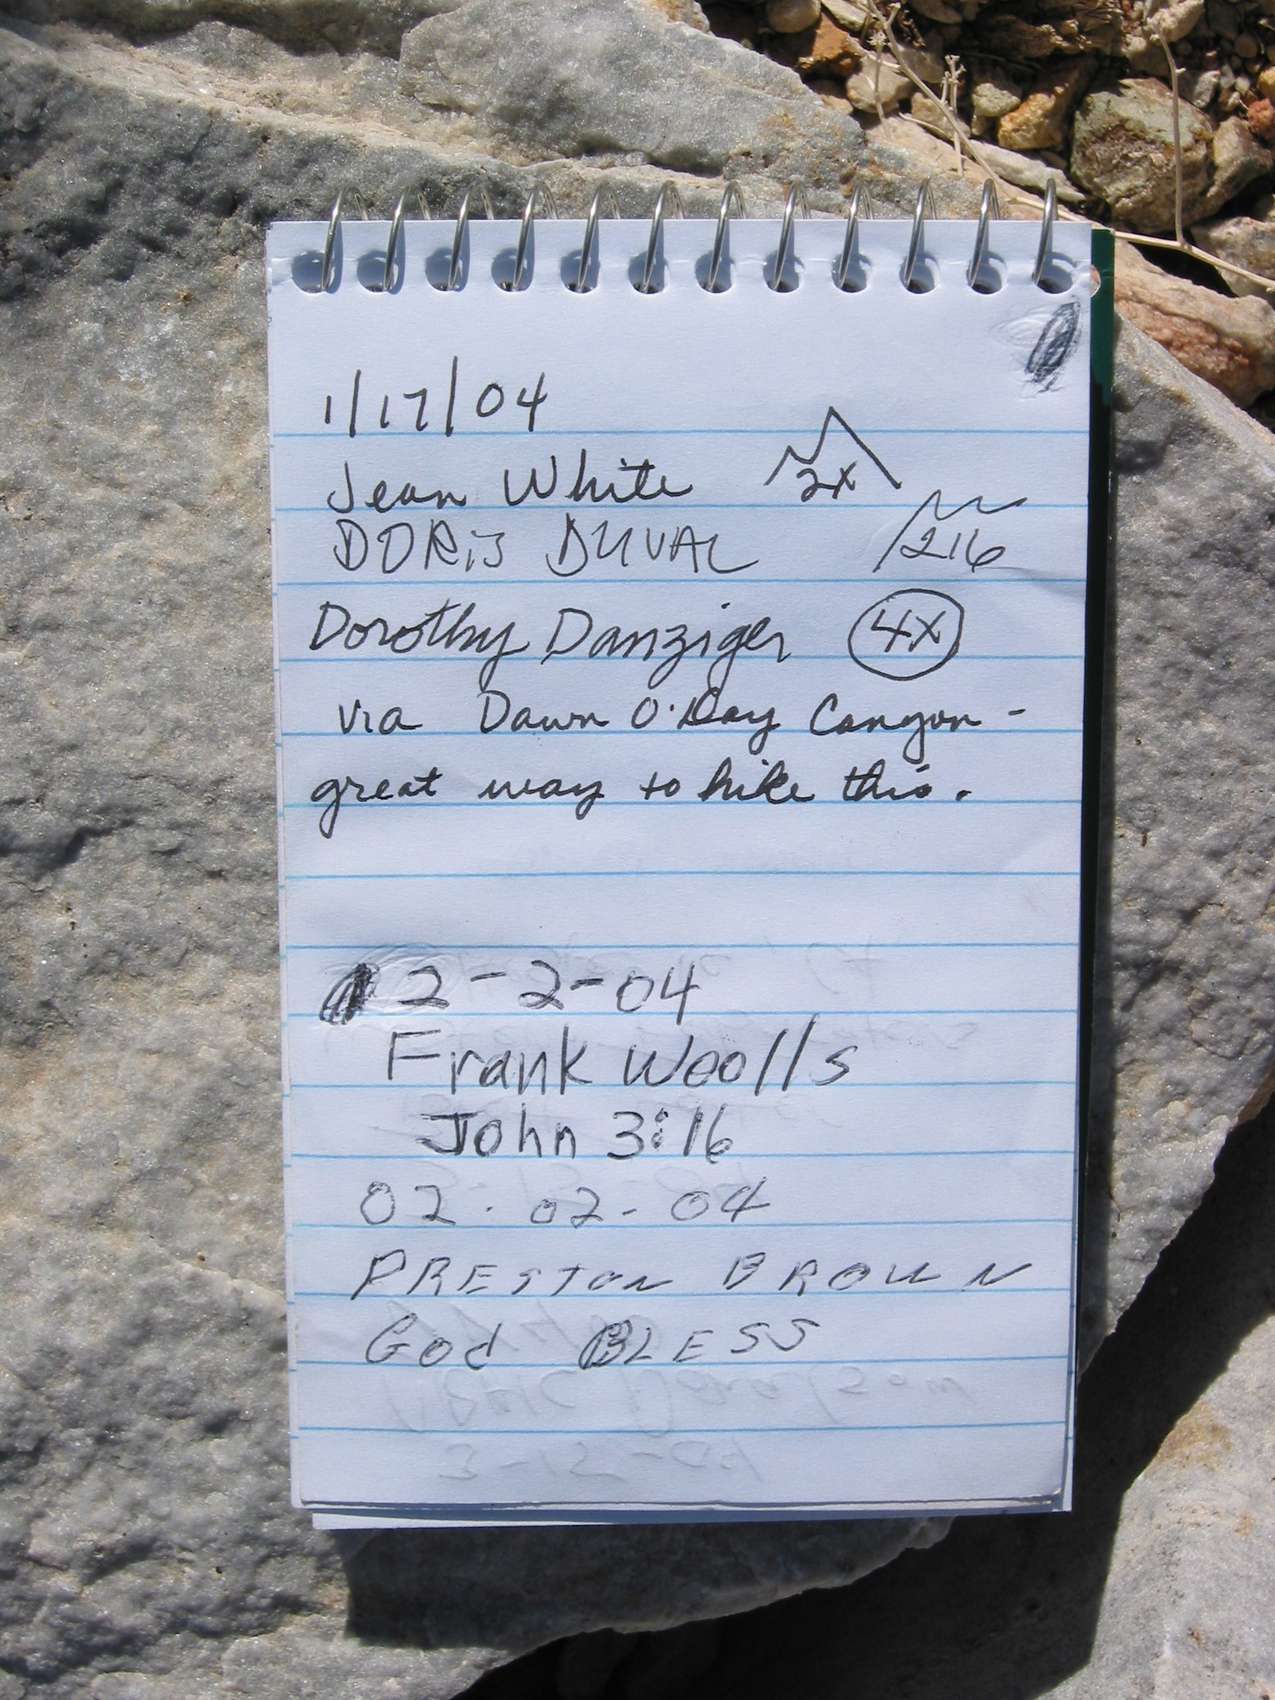 1/17/04
Jean White 2x
DORiS DUVAL 216
Dorothy Danziger 4x
via Dawn O'Day Canyon -
great way to hike this.
2-2-04
Frank Woolls
John 3:16
02.02-04
PRESTON BROWN
God BLESS
3-15-04